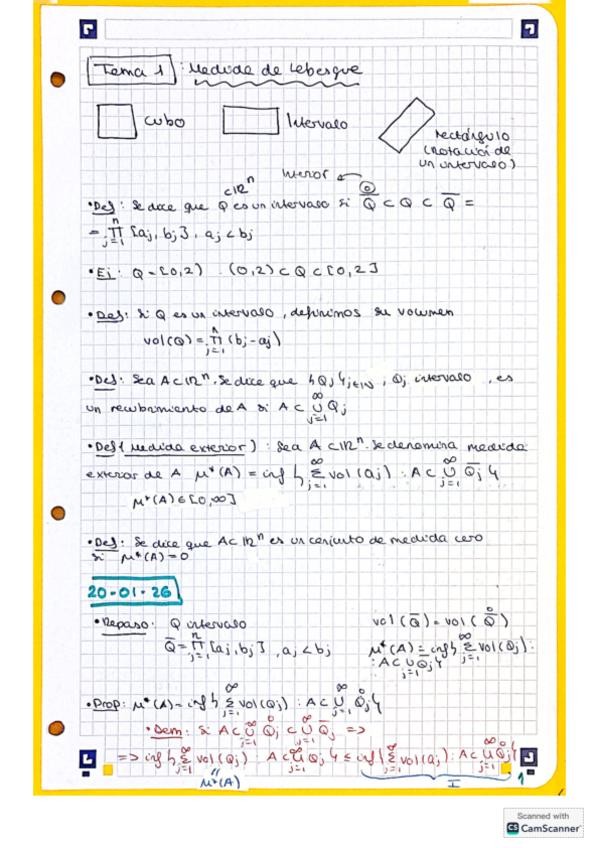 Tema 1 : Medida de Lebesgue
Cubo
Intervalo
rectángulo
(rotación de
un intervalo)
Interior
• Def: Se dice que Q ⊂ ℝⁿ es un intervalo si Q̊̅ ⊂ Q ⊂ Q̅ =
= ∏_{j=1}^{n} [aj, bj], aj < bj
• Ej: Q = [0,2) . (0,2) ⊂ Q ⊂ [0,2]
• Def: Si Q es un intervalo, definimos su volumen
vol(Q) = ∏_{j=1}^{n} (bj - aj)
• Def: Sea A ⊂ ℝⁿ. Se dice que {Qj}_{j∈ℕ}, Qj intervalo, es
un recubrimiento de A si A ⊂ ∪_{j=1}^{∞} Qj
• Def (Medida exterior): Sea A ⊂ ℝⁿ. Se denomina medida
exterior de A μ*(A) = inf { ∑_{j=1}^{∞} vol(Qj) : A ⊂ ∪_{j=1}^{∞} Q̅j }
μ*(A) ∈ [0,∞]
• Def: Se dice que A ⊂ ℝⁿ es un conjunto de medida cero
si μ*(A) = 0
20-01-26
• Repaso: Q intervalo
Q̅ = ∏_{j=1}^{n} [aj, bj], aj < bj
vol(Q̅) = vol(Q̊)
μ*(A) = inf { ∑_{j=1}^{∞} vol(Qj) :
: A ⊂ ∪_{j=1}^{∞} Q̅j }
• Prop: μ*(A) = inf { ∑_{j=1}^{∞} vol(Qj) : A ⊂ ∪_{j=1}^{∞} Q̊j }
• Dem: Si A ⊂ ∪_{j=1}^{∞} Q̊j ⊂ ∪_{j=1}^{∞} Q̅j =>
=> inf { ∑_{j=1}^{∞} vol(Qj) : A ⊂ ∪_{j=1}^{∞} Qj } ≤ inf { ∑_{j=1}^{∞} vol(Qj) : A ⊂ ∪_{j=1}^{∞} Q̊j }
μ*(A)
I
1
Scanned with
CS CamScanner